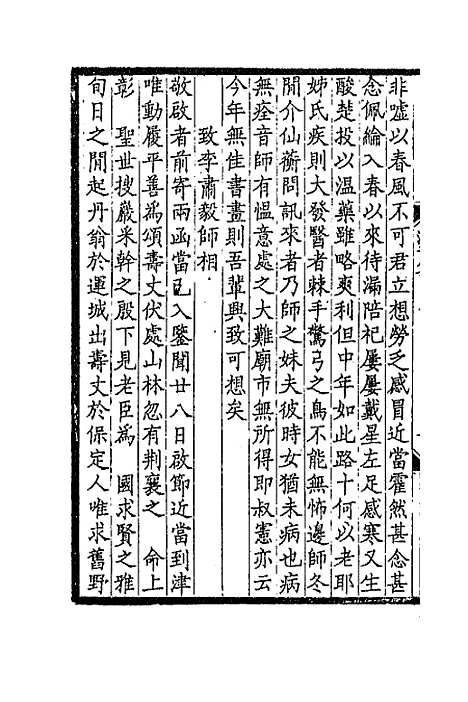 非噓以春風不可君立想勞乏感冒近當霍然甚念甚
念佩綸入春以來待漏陪祀屢屢戴星左足感寒又生
酸楚投以温藥雖略爽利但中年如此路十何以老耶
姊氏疾則大發醫者棘手驚弓之鳥不能無怖邊師冬
閒介仙蘅問訊來者乃師之妹夫彼時女猶未病也病
無痊音師有愠意處之大難廟市無所得即叔憲亦云
今年無佳書畫則吾輩興致可想矣
致李肅毅師相
敬啟者前寄兩函當已入鑒聞廿八日啟節近當到津
唯動履平善為頌壽丈伏處山林忽有荆襄之　命上
彰　聖世搜巖采榦之殷下見老臣為　國求賢之雅
旬日之閒起丹翁於運城出壽丈於保定人唯求舊野